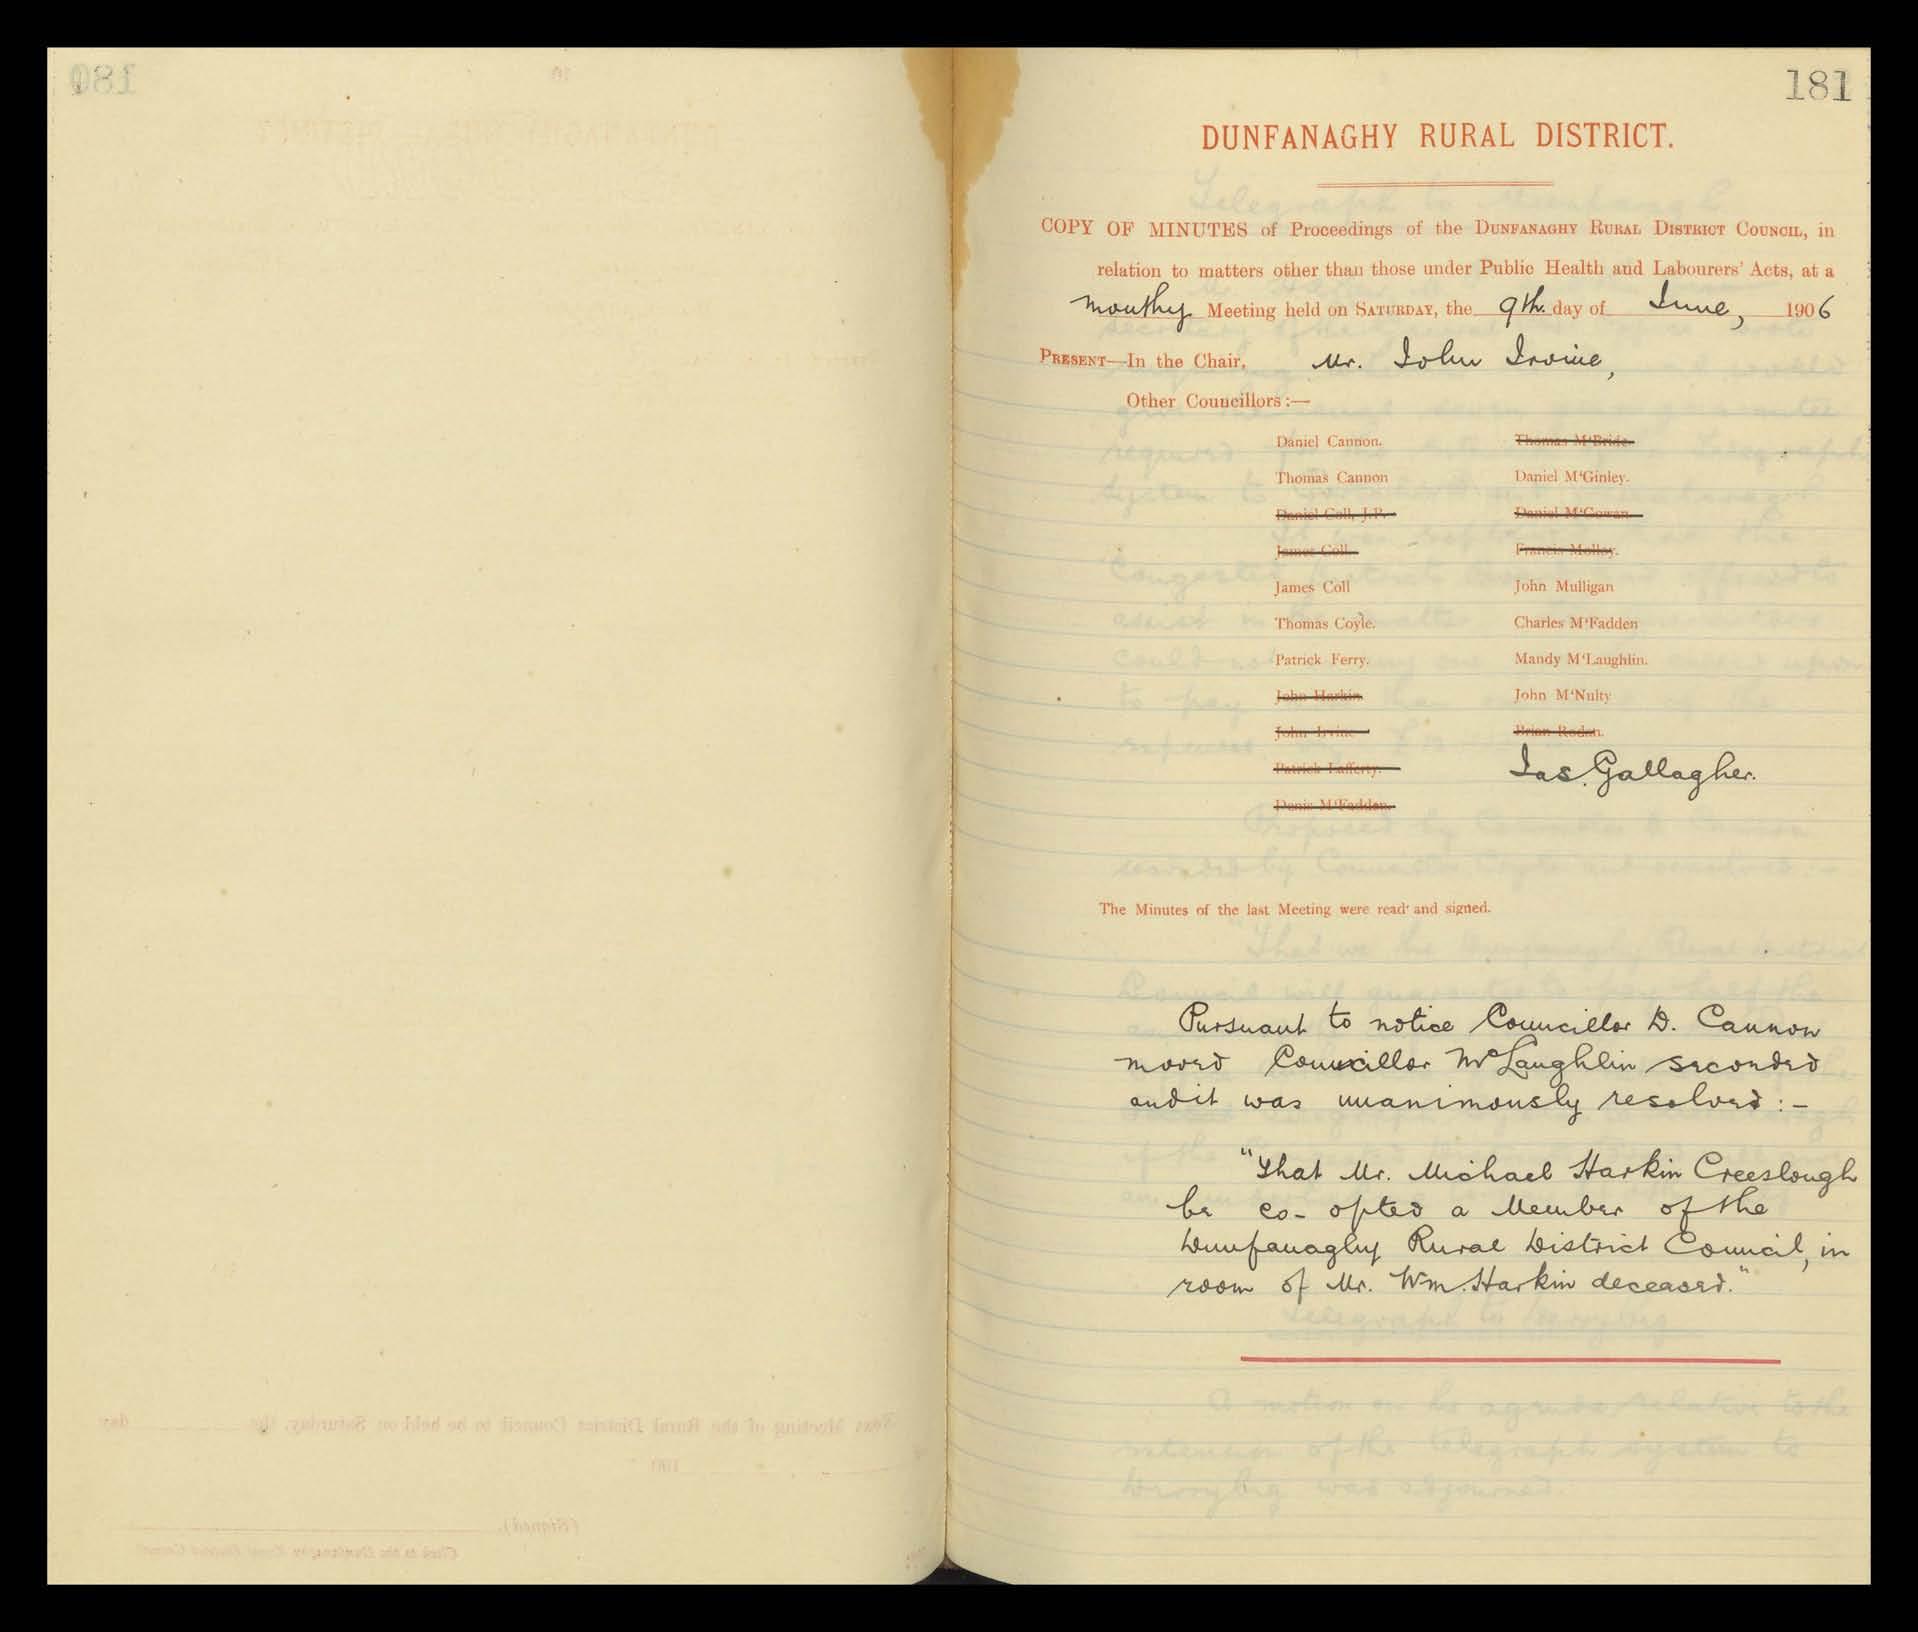 181
DUNFANAGHY RURAL DISTRICT.
COPY OF MINUTES of Proceedings of the DUNFANAGHY RURAL DISTRICT COUNCIL, in
relation to matters other than those under Public Health and Labourers' Acts, at a
Monthy Meeting held on SATURDAY, the 9th. day of June, 1906
PRESENT—In the Chair, Mr. John Irvine,
Other Councillors:—
Daniel Cannon. Thomas M'Bride.
Thomas Cannon Daniel M'Ginley.
Daniel Coll, J.P. Daniel M'Gowan.
James Coll. Francis Molloy.
James Coll John Mulligan
Thomas Coyle. Charles M'Fadden
Patrick Ferry. Mandy M'Laughlin.
John Harkin. John M'Nulty
John Irvine Brian Rodan.
Patrick Lafferty. Jas. Gallagher.
Denis M'Fadden.
The Minutes of the last Meeting were read and signed.
Pursuant to notice Councillor D. Cannon
moved Councillor McLaughlin seconded
and it was unanimously resolved:-
"That Mr. Michael Harkin Creeslough
be co-opted a Member of the
Dunfanaghy Rural District Council, in
room of Mr. Wm. Harkin deceased."